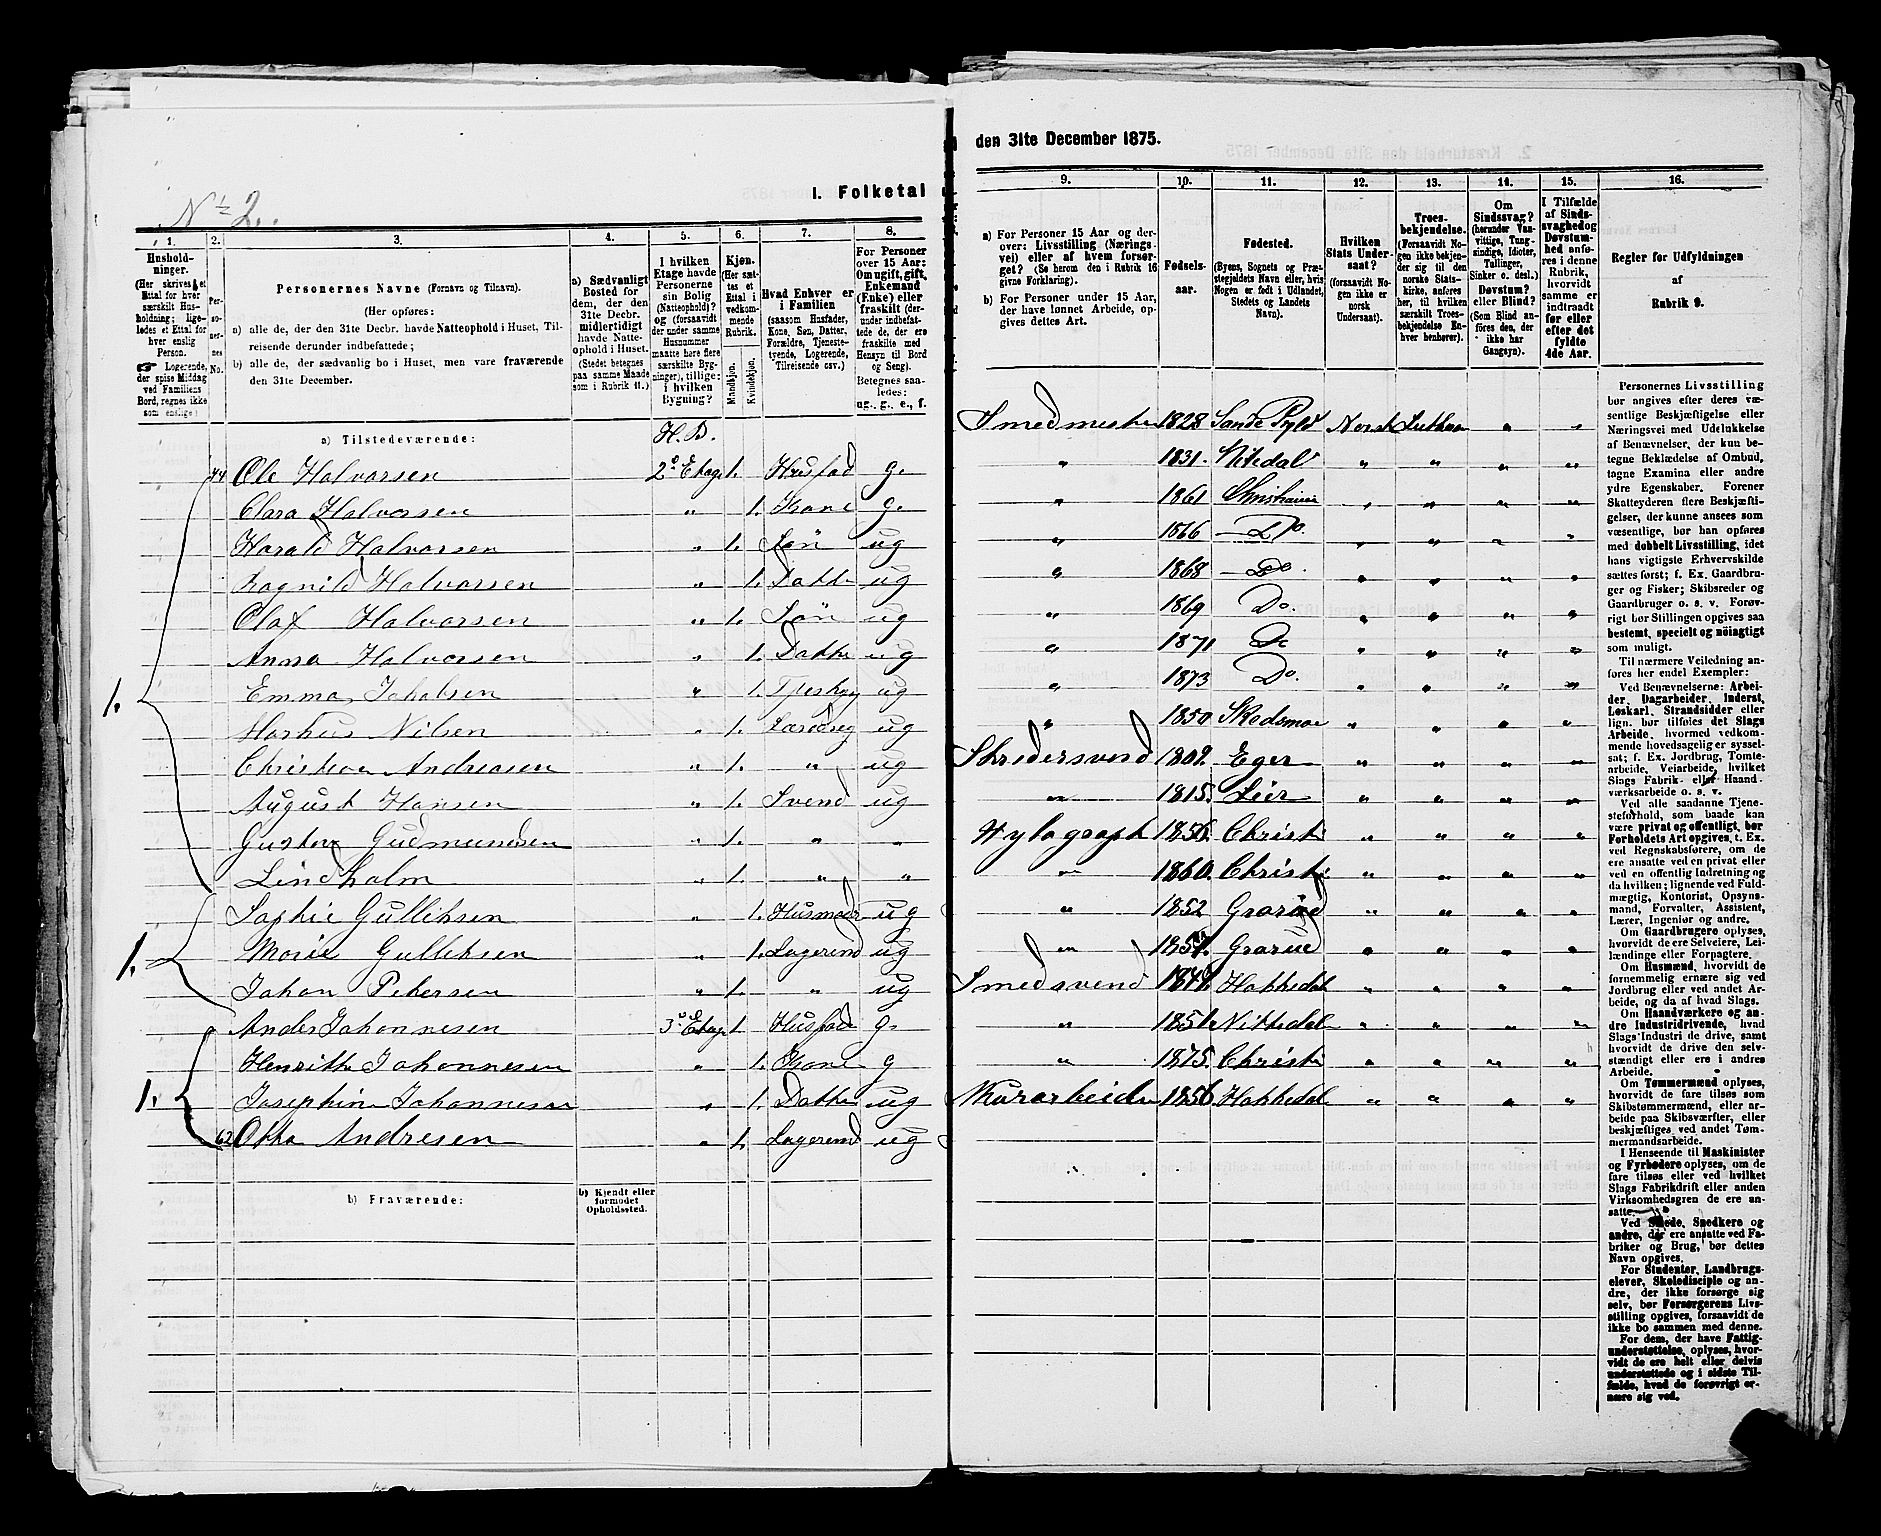 No 2.
1. Folketal
den 31te December 1875.
1. 2. 3. 4. 5. 6. 7. 8.
Husholdninger.
(Her skrives et Ettal for hver særskilt Husholdning; ligeledes et Ettal for hver enslig Person.
Logerende, der spise Middag ved Familiens Bord, regnes ikke som enslige)
Personernes No.
Personernes Navne (Fornavn og Tilnavn).
(Her opføres:
a) alle de, der den 31te Decbr. havde Natteophold i Huset, Tilreisende derunder indbefattede;
b) alle de, der sædvanlig bo i Huset, men vare fraværende den 31te December.
a) Sædvanligt Bosted for dem, der den 31te Decbr. midlertidigt havde Natteophold i Huset. (Stedet betegnes paa samme Maade som i Rubrik 11.)
I hvilken Etage havde Personerne sin Bolig (Natteophold)? og (forsaavidt der under samme Husnummer maatte høre flere særskilte Bygninger), tillige: i hvilken Bygning?
Kjøn. (Her sættes et Ettal i vedkommende Rubrik.
Mandkjøn. Kvindekjøn.
Hvad Enhver er i Familien (saasom Husfader, Kone, Søn, Datter, Forældre, Tjenestetyende, Logerende, Tilreisende osv.)
For Personer over 15 Aar: Om ugift, gift, Enkemand (Enke) eller fraskilt (derunder indbefattede de, der ere fraskilte med Hensyn til Bord og Seng). Betegnes saaledes: ug., g., e., f.
9. 10. 11. 12. 13. 14. 15. 16.
a) For Personer 15 Aar og derover: Livsstilling (Næringsvei) eller af hvem forsørget? (Se herom den i Rubrik 16 givne Forklaring).
b) For Personer under 15 Aar, der have lønnet Arbeide, opgives dettes Art.
Fødselsaar.
Fødested. (Byens, Sognets og Præstegjeldets Navn eller, hvis Nogen er født i Udlandet, Stedets og Landets Navn).
Hvilken Stats Undersaat? (forsaavidt Nogen ikke er norsk Undersaat).
Troesbekjendelse. (Forsaavidt Nogen ikke bekjender sig til den norske Statskirke, anføres her, til hvilken særskilt Troesbekjendelse Enhver henhører).
Om Sindssvag? (herunder Vanvittige, Tungsindige, Idioter, Tullinger, Sinker o. desl.) Døvstum? eller Blind? (Som Blind anføres den, der ikke har Gangsyn).
I Tilfælde af Sindssvaghed og Døvstumhed anføres i denne Rubrik, hvorvidt samme er indtraadt før eller efter det fyldte 4de Aar.
Regler for Udfyldningen af Rubrik 9.
a) Tilstedeværende: H. B.
44 Ole Halvorsen 2den Etage 1. Husfad g.
Clara Halvorsen „ 1. Kone g.
Harald Halvorsen „ 1. Søn ug
Ragnild Halvorsen „ 1. Datte ug
Olaf Halvorsen „ 1. Søn ug
Anna Halvorsen „ 1. Datte ug
1. Emma Jakobsen „ 1. ug
Markus Nilsen „ 1. ug
Christian Andreasen „ 1. „ ug
August Hansen „ 1. Svend ug
Gustav Gudmundsen „ 1. „ „
Lindholm „ 1. „ „
Sophie Gulliksen „ 1. Husmoder ug
1. Marie Gulliksen „ 1. Logerend ug
Johan Petersen „ 1. „ ug
Ander Johannesen 3die Etage 1. Husfade g.
Henritte Johannesen „ 1. Kone g
1. Josephine Johannesen „ 1. Datte ug
62 Otto Andresen „ 1. Logerend ug
b) Fraværende:
b) Kjendt eller formodet Opholdssted.
Smedmester 1828 Sande Norsk Luthe „ „
„ 1831. Nitedal „ „ „ „
„ 1861 Christiania „ „ „ „
„ 1866 Do. „ „ „ „
„ 1868 Do. „ „ „ „
„ 1869 Do. „ „ „ „
„ 1871 Do „ „ „ „
„ 1873 Do. „ „ „ „
„ 1850 Skedsmoe „ „ „ „
Skredersvend 1802. Eger „ „ „ „
„ 1815. Lier „ „ „ „
Xylograph 1856. Christi „ „ „ „
„ 1860. Christi „ „ „ „
„ 1852 Grorud „ „ „ „
„ 1857. Grorud „ „ „ „
Smedsvend Hakkedal „ „ „ „
„ 1851 Nittedal „ „ „ „
„ 1875. Christi „ „ „ „
Murarbeider 1856 Hakkedal „ „ „ „
Personernes Livsstilling bør angives efter deres væsentlige Beskjæftigelse eller Næringsvei med Udelukkelse af Benævnelser, der kun betegne Beklædelse af Ombud, tagne Examina eller andre ydre Egenskaber. Forener Skatteyderen flere Beskjæftigelser, der kunne ansees som væsentlige, bør han opføres med dobbelt Livsstilling, idet hans vigtigste Erhvervskilde sættes først; f. Ex. Gaardbruger og Fisker; Skibsreder og Gaardbruger o. s. v. Forøvrigt bør Stillingen opgives saa bestemt, specielt og nöiagtigt som muligt.
Til nærmere Veiledning anføres her endel Exempler:
Ved Benævnelserne: Arbeider, Dagarbeider, Inderst, Løskarl, Strandsidder eller lign. bør tilføies det Slags Arbeide, hvormed vedkommende hovedsagelig er sysselsat; f. Ex. Jordbrug, Tomtearbeide, Veiarbeide, hvilket Slags Fabrik- eller Haandværksarbeide o. s. v.
Ved alle saadanne Tjenesteforhold, som baade kan være privat og offentligt, bør Forholdets Art opgives, t. Ex. ved Regnskabsførere, om de ere ansatte ved en privat eller ved en offentlig Indretning og da hvilken; lignende ved Fuldmægtig, Kontorist, Opsynsmand, Forvalter, Assistent, Lærer, Ingeniør og andre.
Om Gaardbrugere oplyses, hvorvidt de ere Selveiere, Leilændinge eller Forpagtere.
Om Husmænd, hvorvidt de fornemmelig ernære sig ved Jordbrug eller ved andet Arbeide, og da af hvad Slags.
Om Haandværkere og andre Industridrivende, hvad Slags Industri de drive, samt hvorvidt de drive den selvstændigt eller ere i andres Arbeide.
Om Tømmermænd oplyses, hvorvidt de fare tilsøs som Skibstømmermænd, eller arbeide paa Skibsværfter, eller beskjæftiges ved andet Tømmermandsarbeide.
I Henseende til Maskinister og Fyrbødere oplyses, om de fare tilsøs eller ved hvilket Slags Fabrikdrift eller anden Virksomhedsgren de ere ansatte.
Ved Smede, Snedkere og andre, der ere ansatte ved Fabriker og Brug, bør dettes Navn opgives.
For Studenter, Landbrugselever, Skoledisciple og andre, der ikke forsørge sig selv, bør Forsørgerens Livsstilling opgives, forsaavidt de ikke bo sammen med denne.
For dem, der have Fattigunderstøttelse, oplyses, hvorvidt de ere helt eller delvis understøttede og i sidste Tilfælde, hvad de forøvrigt ernære sig ved.